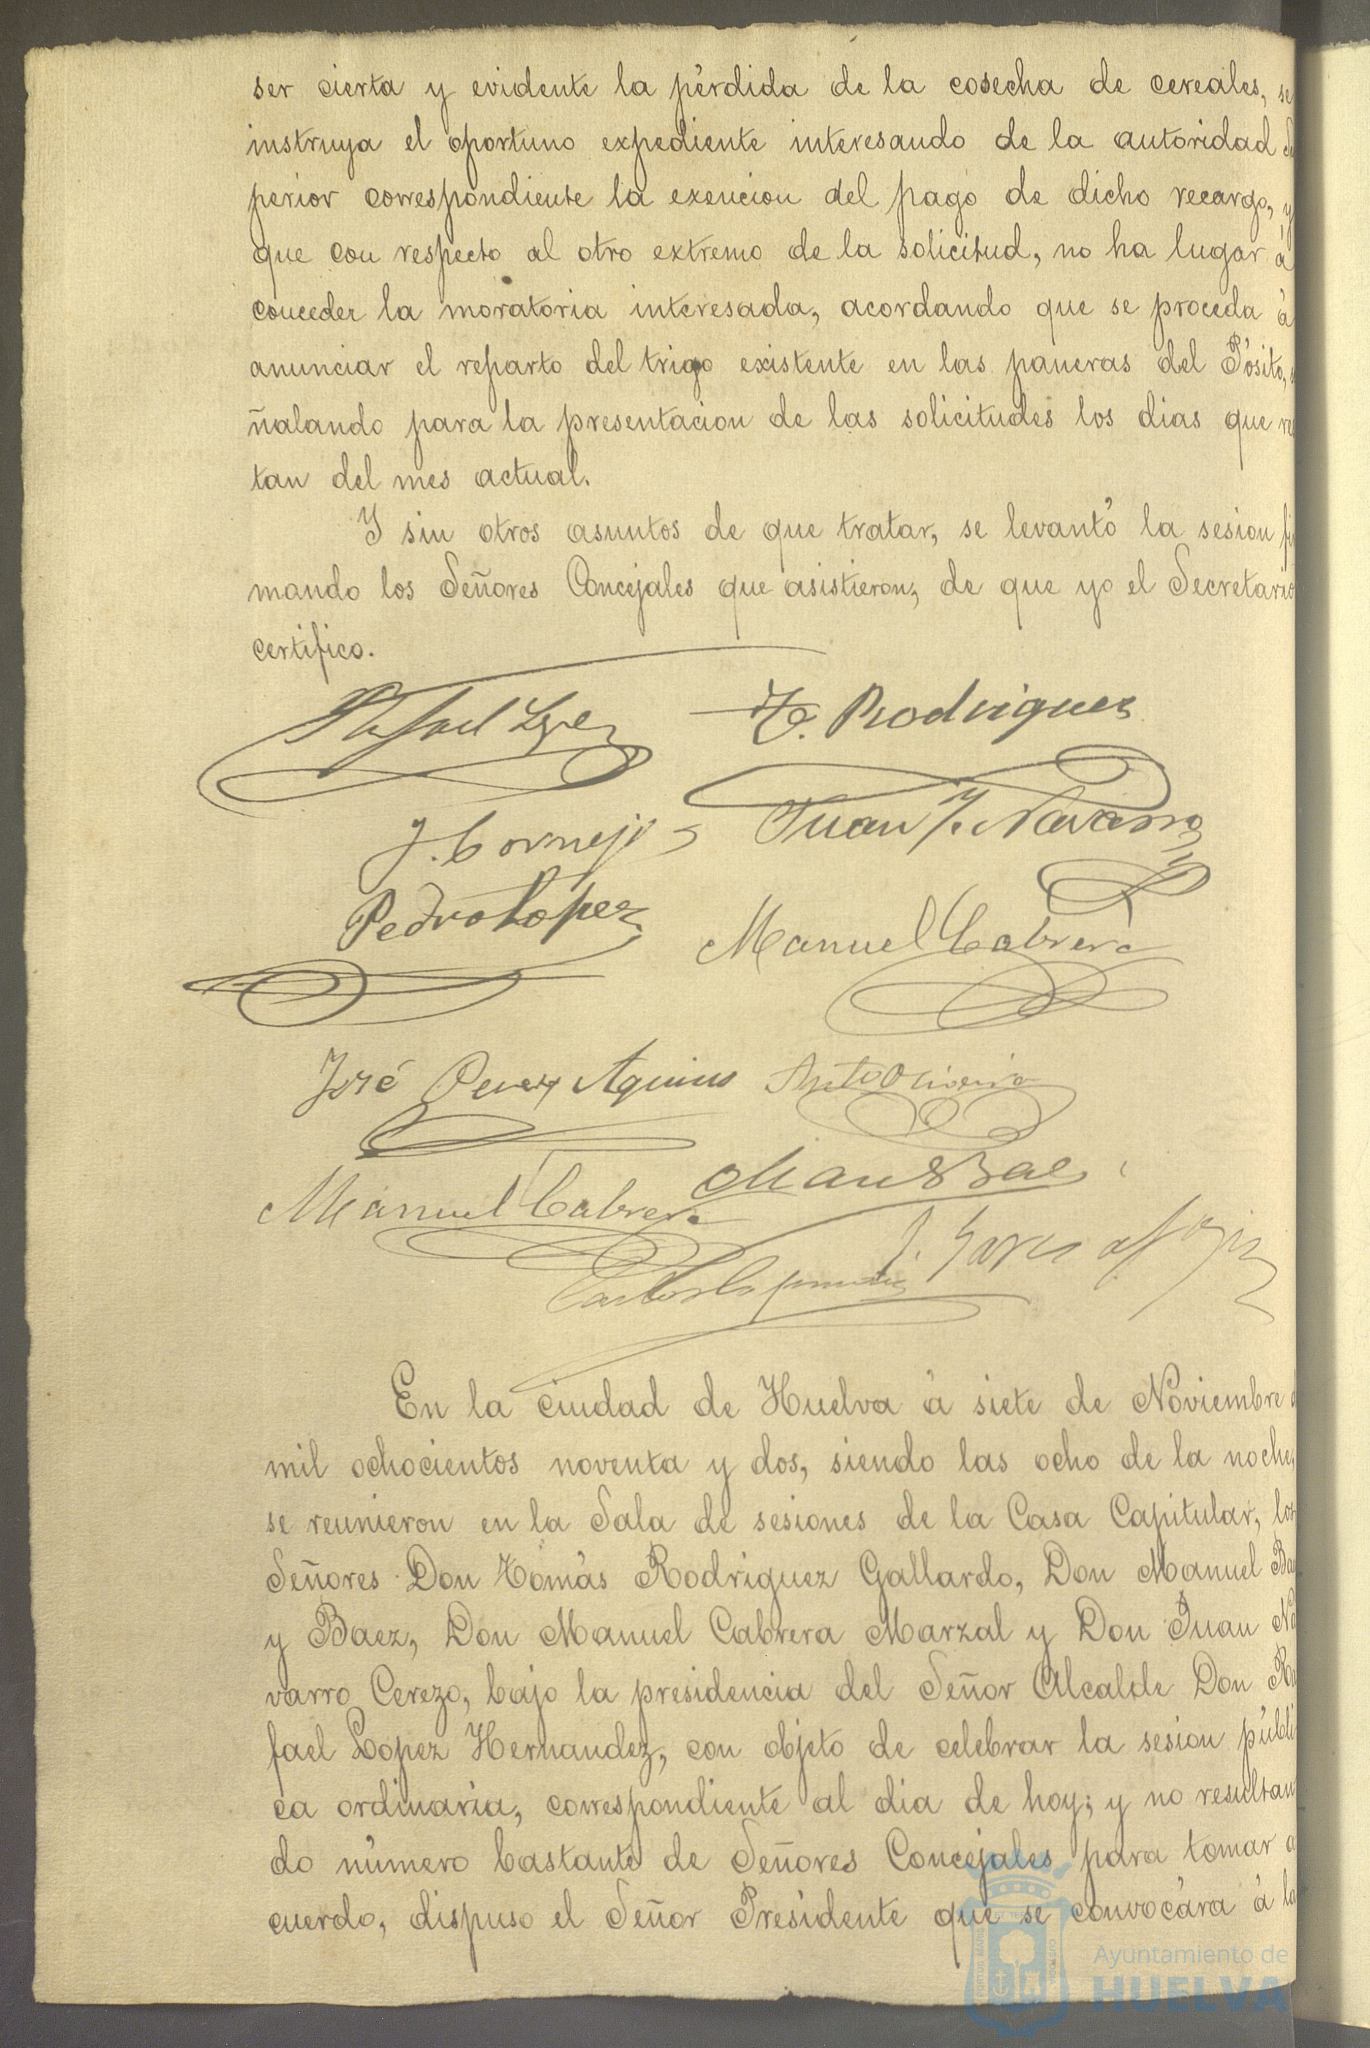 ser cierta y evidente la pérdida de la cosecha de cereales, se
instruya el oportuno expediente interesando de la autoridad Su
perior correspondiente la exencion del pago de dicho recargo, y
que con respecto al otro extremo de la solicitud, no ha lugar á
conceder la moratoria interesada, acordando que se proceda á
anunciar el reparto del trigo existente en las paneras del Pósito,
ñalando para la presentacion de las solicitudes los dias que res
tan del mes actual.
Y sin otros asuntos de que tratar, se levantó la sesion fir
mando los Señores Concejales que asistieron, de que yo el Secretario
certifico.
Rafael Lopez
T. Rodriguez
J. Cornejo
Juan J. Navarro
Pedro Lopez
Manuel Cabrera
José Perez Aquino
Anto Oliveira
Man Baez
Manuel Cabrera
J. Garcia
En la ciudad de Huelva á siete de Noviembre d
mil ochocientos noventa y dos, siendo las ocho de la noche,
se reunieron en la Sala de sesiones de la Casa Capitular, los
Señores Don Tomás Rodriguez Gallardo, Don Manuel Bae
y Baez, Don Manuel Cabrera Marzal y Don Juan Na
varro Cerezo, bajo la presidencia del Señor Alcalde Don Ra
fael Lopez Hernandez, con objeto de celebrar la sesion públi
ca ordinaria, correspondiente al dia de hoy; y no resultan
do número bastante de Señores Concejales para tomar a
cuerdo, dispuso el Señor Presidente que se convocára á lo
Ayuntamiento de
HUELVA